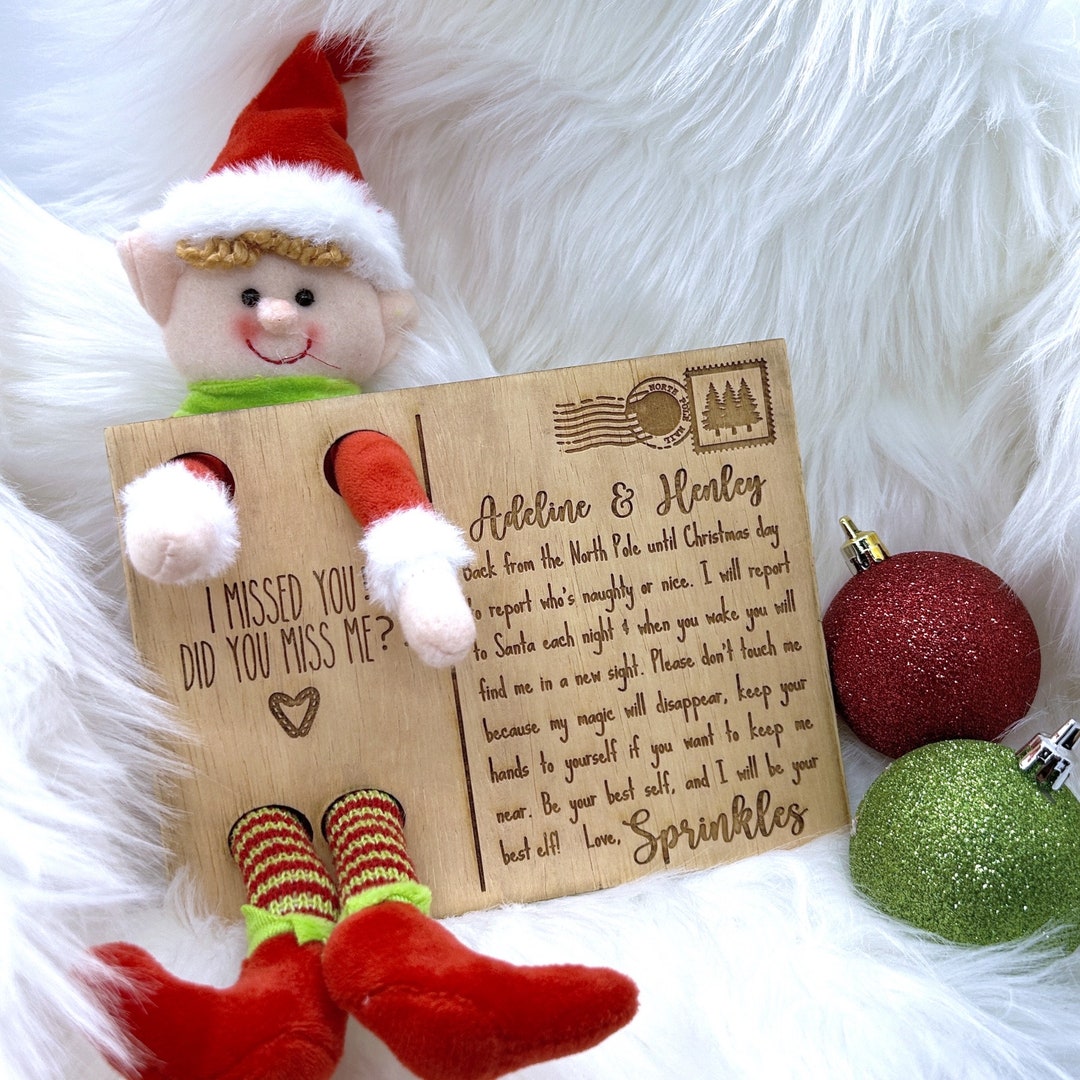 I MISSED YOU
DID YOU MISS ME?
NORTH POLE MAIL
Adeline & Henley
back from the North Pole until Christmas day
to report who's naughty or nice. I will report
to Santa each night & when you wake you will
find me in a new sight. Please don't touch me
because my magic will disappear, keep your
hands to yourself if you want to keep me
near. Be your best self, and I will be your
best elf! Love, Sprinkles